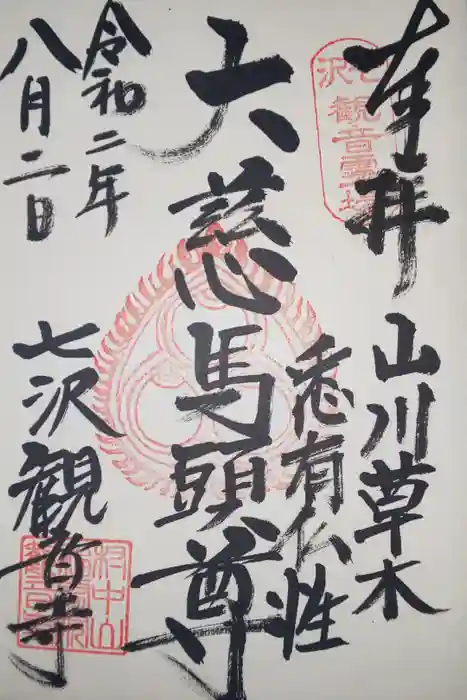 奉拝
山川草木
悉有仏性
大慈馬頭尊
令和二年
八月二日
七沢観音寺
七沢観音霊場